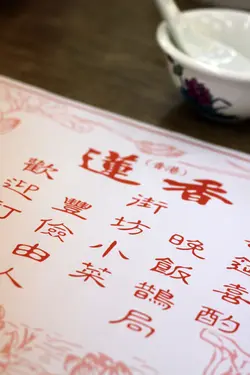 蓮(香港)香
筵喜酌
晚飯鵲局
街坊小菜
豐儉由人
歡迎訂